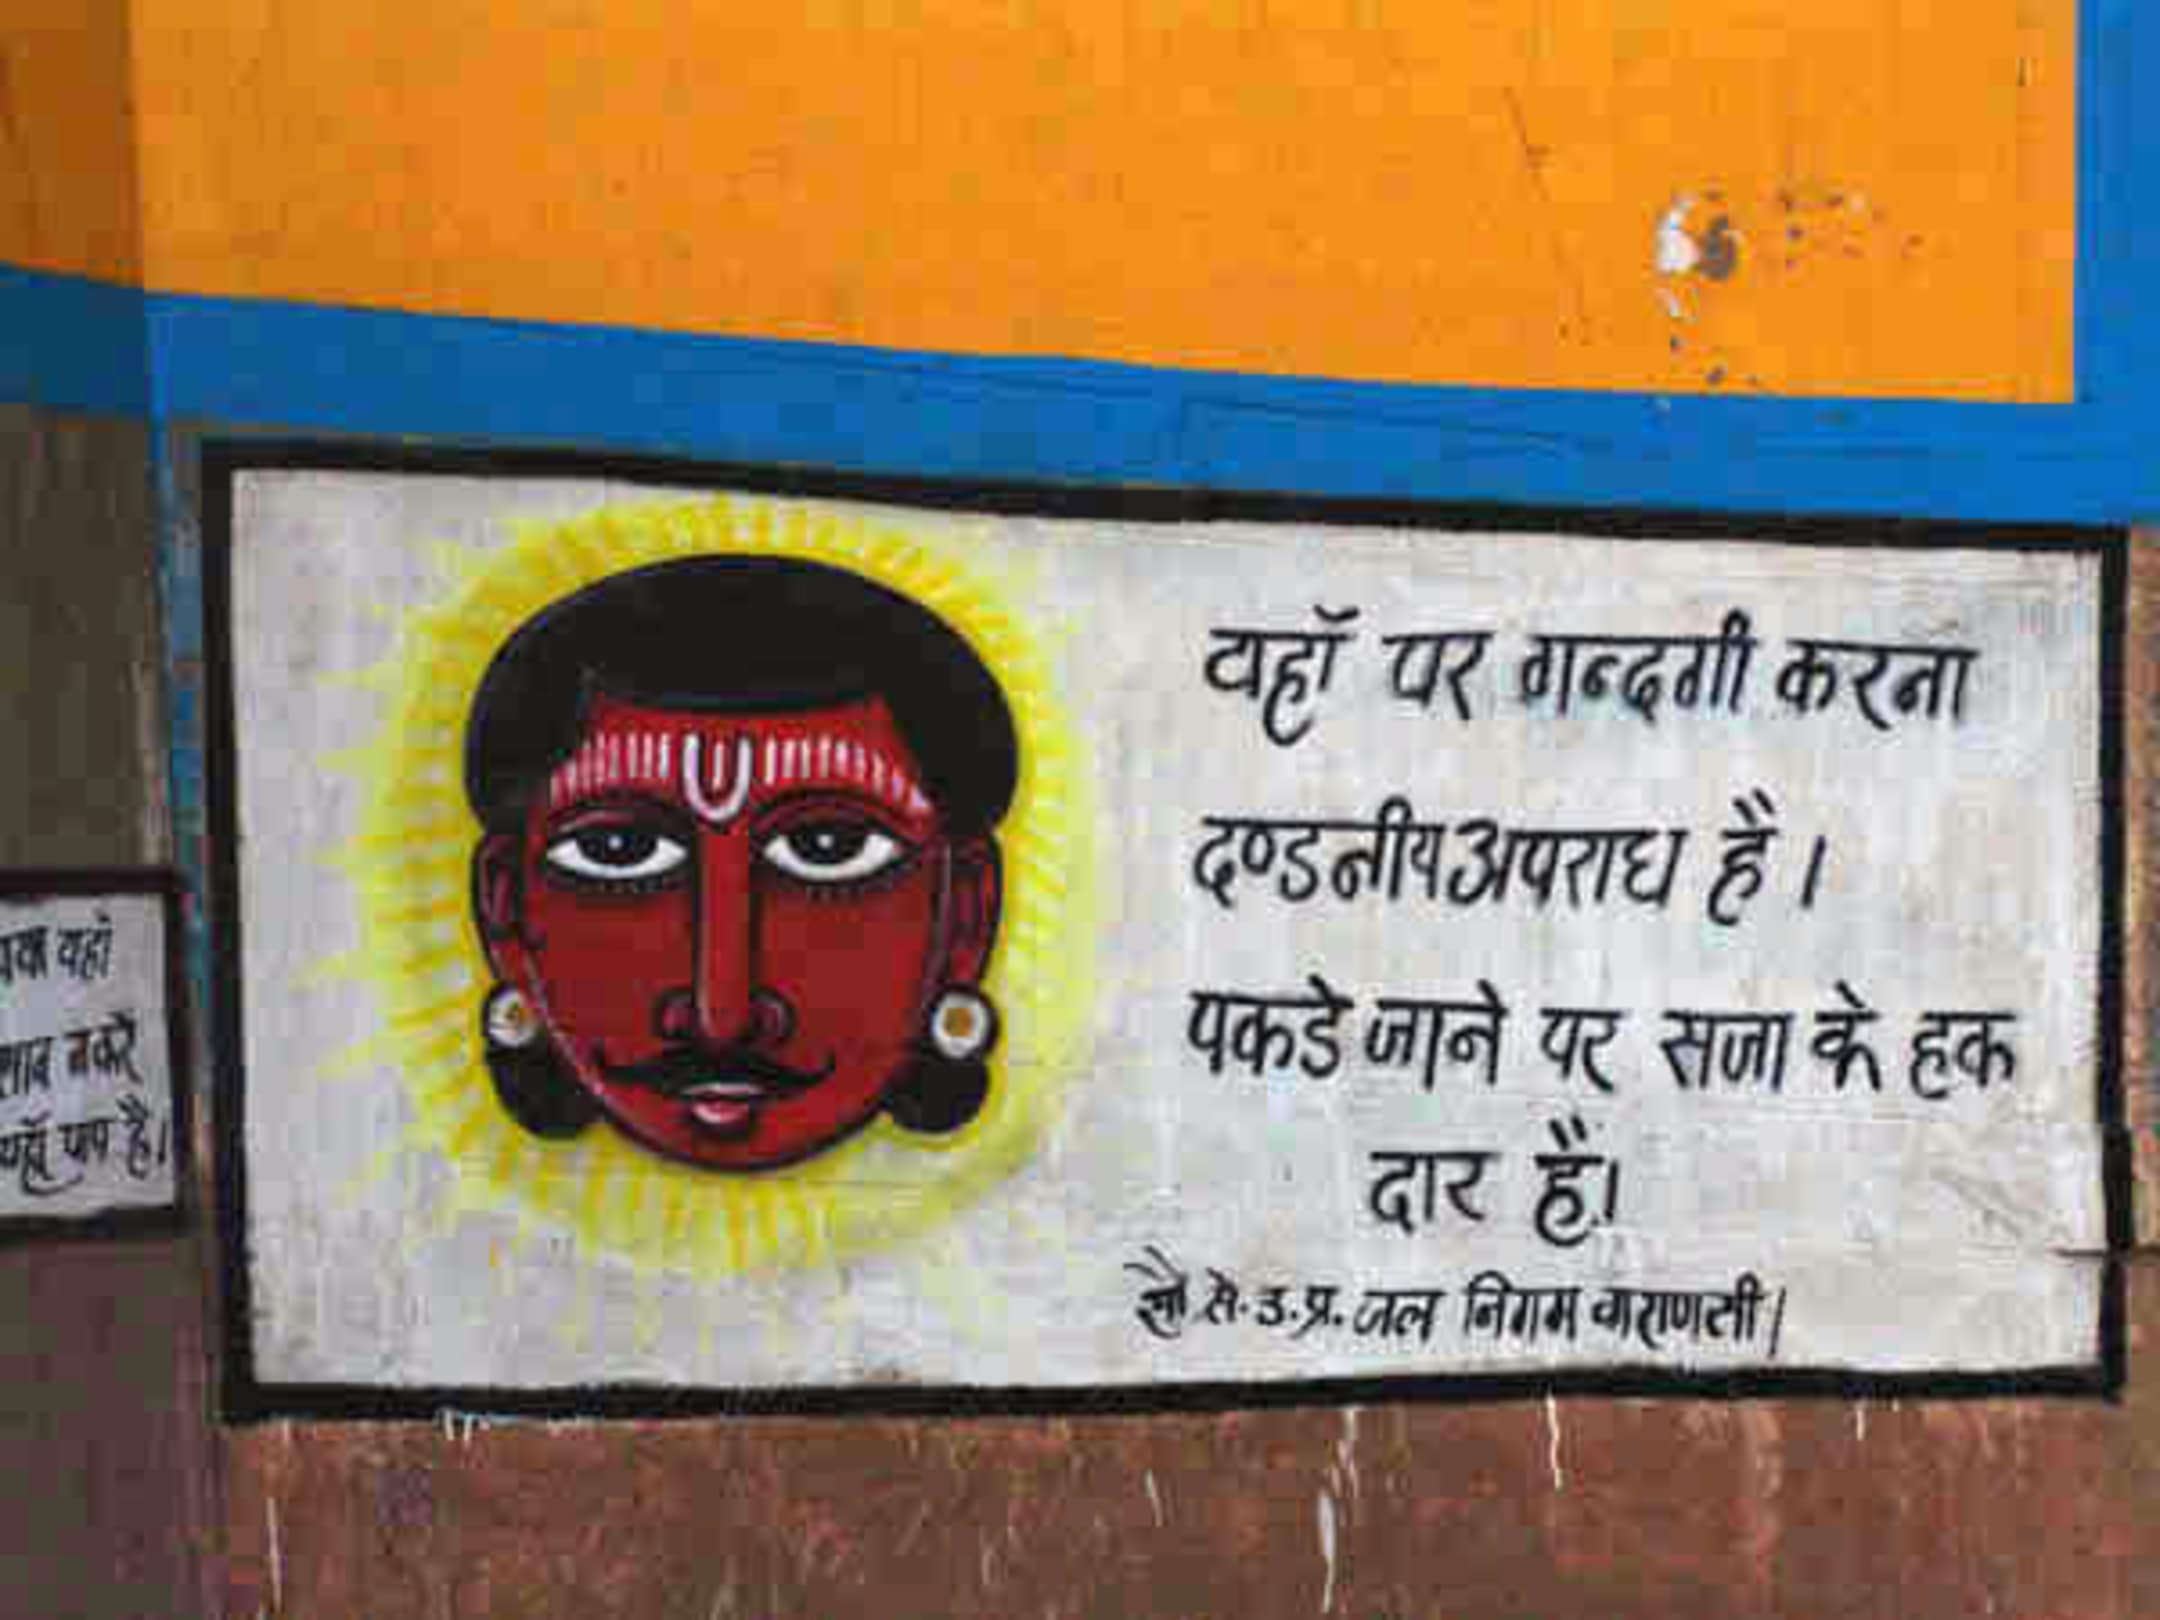 यहाँ पर गन्दगी करना
दण्डनीय अपराध है।
पकडे जाने पर सजा के हक
दार है।
सौ से. उ.प्र. जल निगम वाराणसी।
यहां
न करें
यहाँ पाप है।